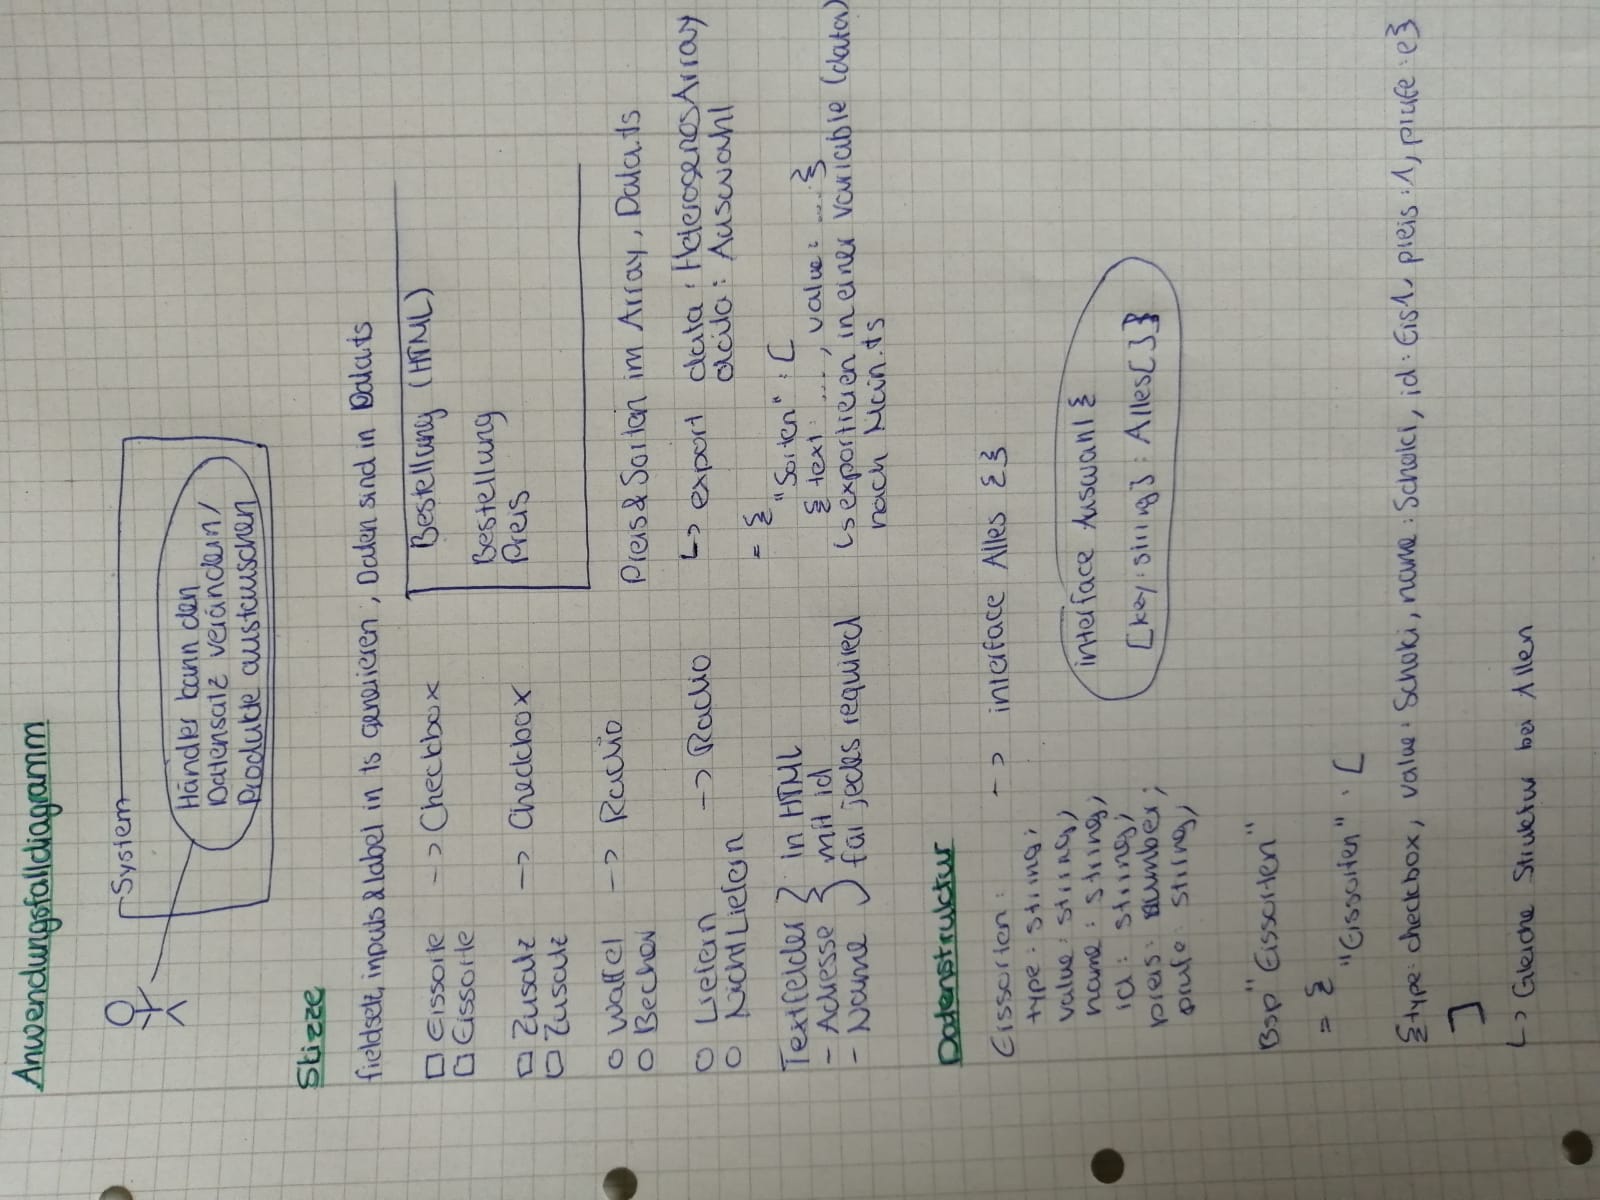 Anwendungsfalldiagramm
System
Händler kann den
Datensatz verändern/
Produkte austauschen
Skizze
fieldset, inputs & label in ts generieren, Daten sind in Data.ts
□ Eissorte -> Checkbox
□ Eissorte
□ Zusatz -> Checkbox
□ Zusatz
○ Waffel -> Radio
○ Becher
○ Liefern -> Radio
○ Nicht Liefern
Textfelder } in HTML
- Adresse } mit id
- Name } für jedes required
Bestellung (HTML)
Bestellung
Preis
Preis & Sorten im Array, Data.ts
↳ export data: HeterogenosArray
data: Auswahl
= {
"Sorten" : [
{ text: ..., value: ... }
↳ exportieren in einer variable (data)
nach Main.ts
Datenstruktur
Eissorten: -> interface Alles {}
type: string;
value: string;
name: string;
id: string;
preis: number;
prufe: string;
interface Auswahl {
[key: string] : Alles[]}
Bsp "Eissorten"
= {
"Eissorten" : [
{type: checkbox, value: Schoki, name: Schoki, id: Eis1, preis: 1, prufe: e}
]
↳ Gleiche Struktur bei Allen